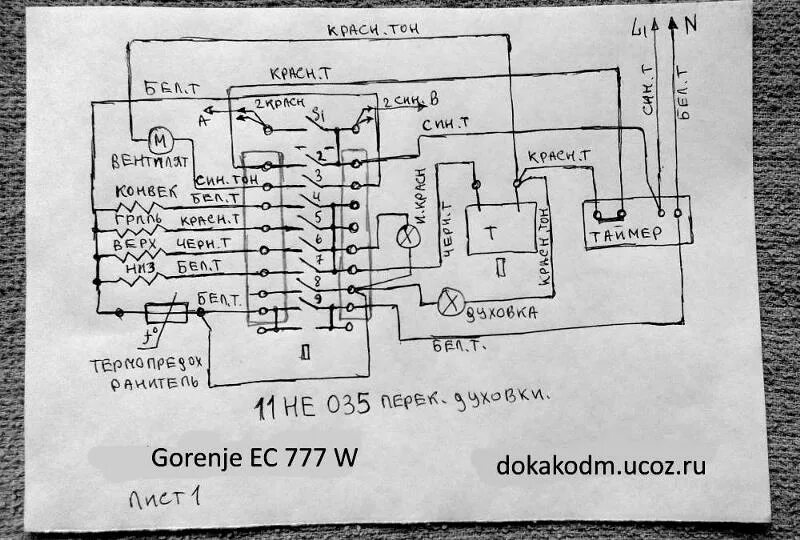 КРАСН. ТОН
L1 N
КРАСН. Т
БЕЛ. Т
2 КРАСН
2 СИН. В
A
S1
СИН. Т
БЕЛ. Т
СИН. Т
M
ВЕНТИЛЯТ
2
КРАСН. Т
СИН. ТОН
3
КОНВЕК
БЕЛ. Т
4
И. КРАСН
ГРИЛЬ
КРАСН. Т
5
ЧЕРН. Т
Т
КРАСН. ТОН
ТАЙМЕР
ВЕРХ
ЧЕРН. Т
6
НИЗ
БЕЛ. Т
7
П
8
БЕЛ. Т.
9
ДУХОВКА
t°
БЕЛ. Т.
ТЕРМОПРЕДОХ
РАНИТЕЛЬ
П
11 НЕ 035 ПЕРЕК. ДУХОВКИ.
Gorenje EC 777 W
dokakodm.ucoz.ru
Лист 1